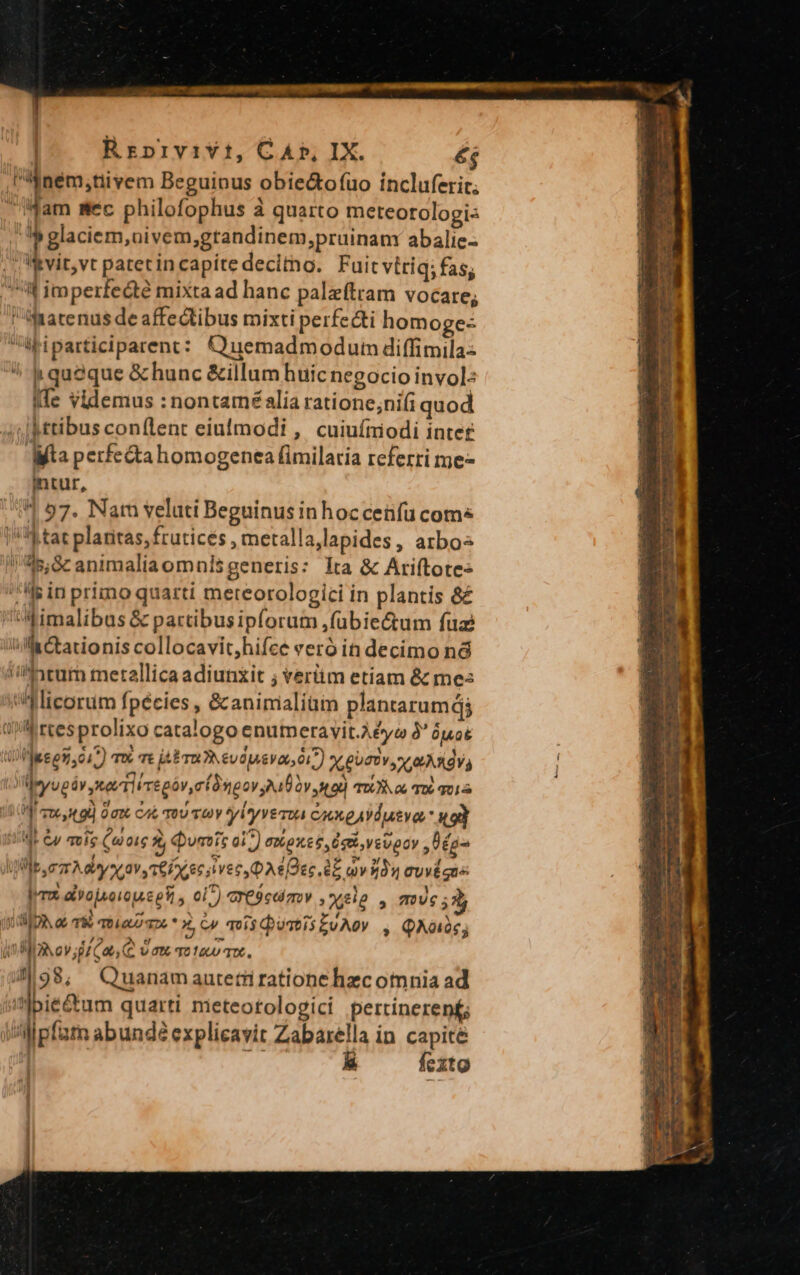 REDIVIVI, CAP. IX. 65
nem, nivem Beguinus obiecto suo incluserit.
am nec philosophus à quarto meteorologi-
glaciem, nivem, grandinem, pruinam abalie-
vit, vt patet in capite decimo. Fuit vtriq; fas,
imperfectè mixta ad hanc palæstram vocare,
atenus de affectibus mixti perfecti homoge-
i participarent: Quemadmodum dissimila-
queque & hunc & illum huic negocio invol-
sse videmus : non tamẽ alia ratione, nisi quod
rtibus constent eiusmodi , cuiusmodi inter
ista perfecta homogenea similaria referri me-
ntur.
97. Nam veluti Beguinus in hoc censu com-
tat plantas, frutices , metalla, lapides , arbo-
s, & animalia omnis generis: Ita & Aristote-
in primo quarti meteorologici in plantis &
imalibus & partibus ipsorum , subiectum suæ
actationis collocavit, hisce verò in decimo nõ
ntum metallica adiunxit ; verùm etiam & me-
llicorum species, & animalium plantarumq;
rtes prolixo catalogo enumeravit. λέγω δ' ὁμοι
μερῆ, οἷ) τά τε μεταλλευόμενα, οἷ) χρυσὸν, χαλκὸν,
ργυρόν, καττίτερόν, σίδηρον, λίθον, καὶ τἄλλα τὰ τοιαῦ
τα, καὶ ὅσα ἐκ τούτων γίγνεται ἐκκρινόμενα· καὶ
ἐν τοῖς ζώοις καὶ φυτοῖς οἷ) σάρκες, ὀστᾶ, νεῦρον , δέρ-
, σπλάγχνον, τρίχες, ἶνες, φλέβες, ἐξ ὧν ἤδη συνέστη-
τὰ ἀνομοιομερῆ , οἷ) πρόσωπον , χεὶρ , ποῦς , καὶ
λλα τὰ τοιαῦτα· καὶ ἐν τοῖς φυτοῖς ξύλον , φλοιὸς,
λλον, ῥίζα, καὶ ὅσα τοιαῦτα.
98, Quanam autem ratione hæc omnia ad
biectum quarti meteorologici pertinerent,
psum abundè explicavit Zabarella in capite
sexto